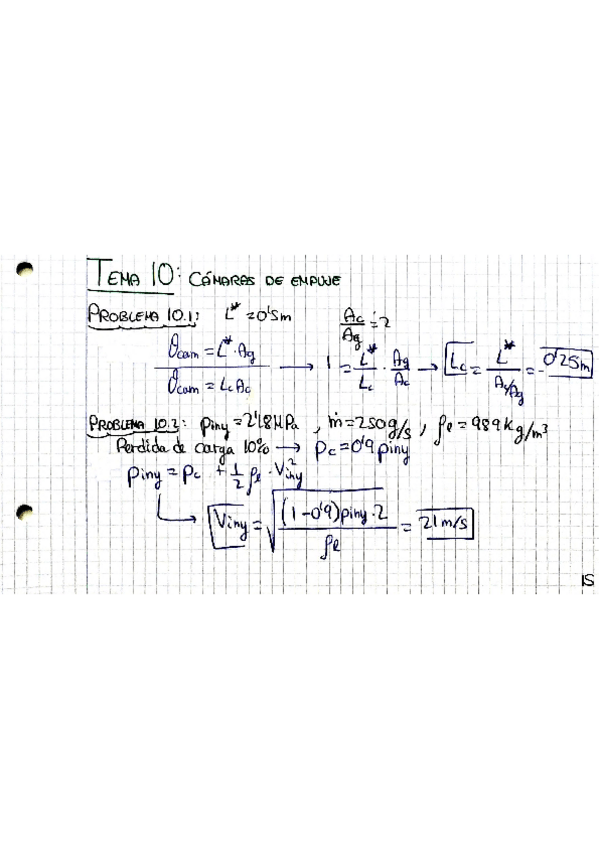 TEMA 10: CÁMARAS DE EMPUJE
PROBLEMA 10.1: L* = 0'5m Ac/Ag = 2
ϑcam = L*·Ag
ϑcam = Lc Ac
→ 1 = L*/Lc · Ag/Ac → Lc = L*/(Ac/Ag) = 0'25m
PROBLEMA 10.2: Piny = 2'18MPa, ṁ = 250g/s, ρl = 989Kg/m³
Perdida de carga 10% → Pc = 0'9 piny
Piny = Pc + 1/2 ρl · Viny²
Viny = √((1-0'9)piny·2/ρl) = 21m/s
15